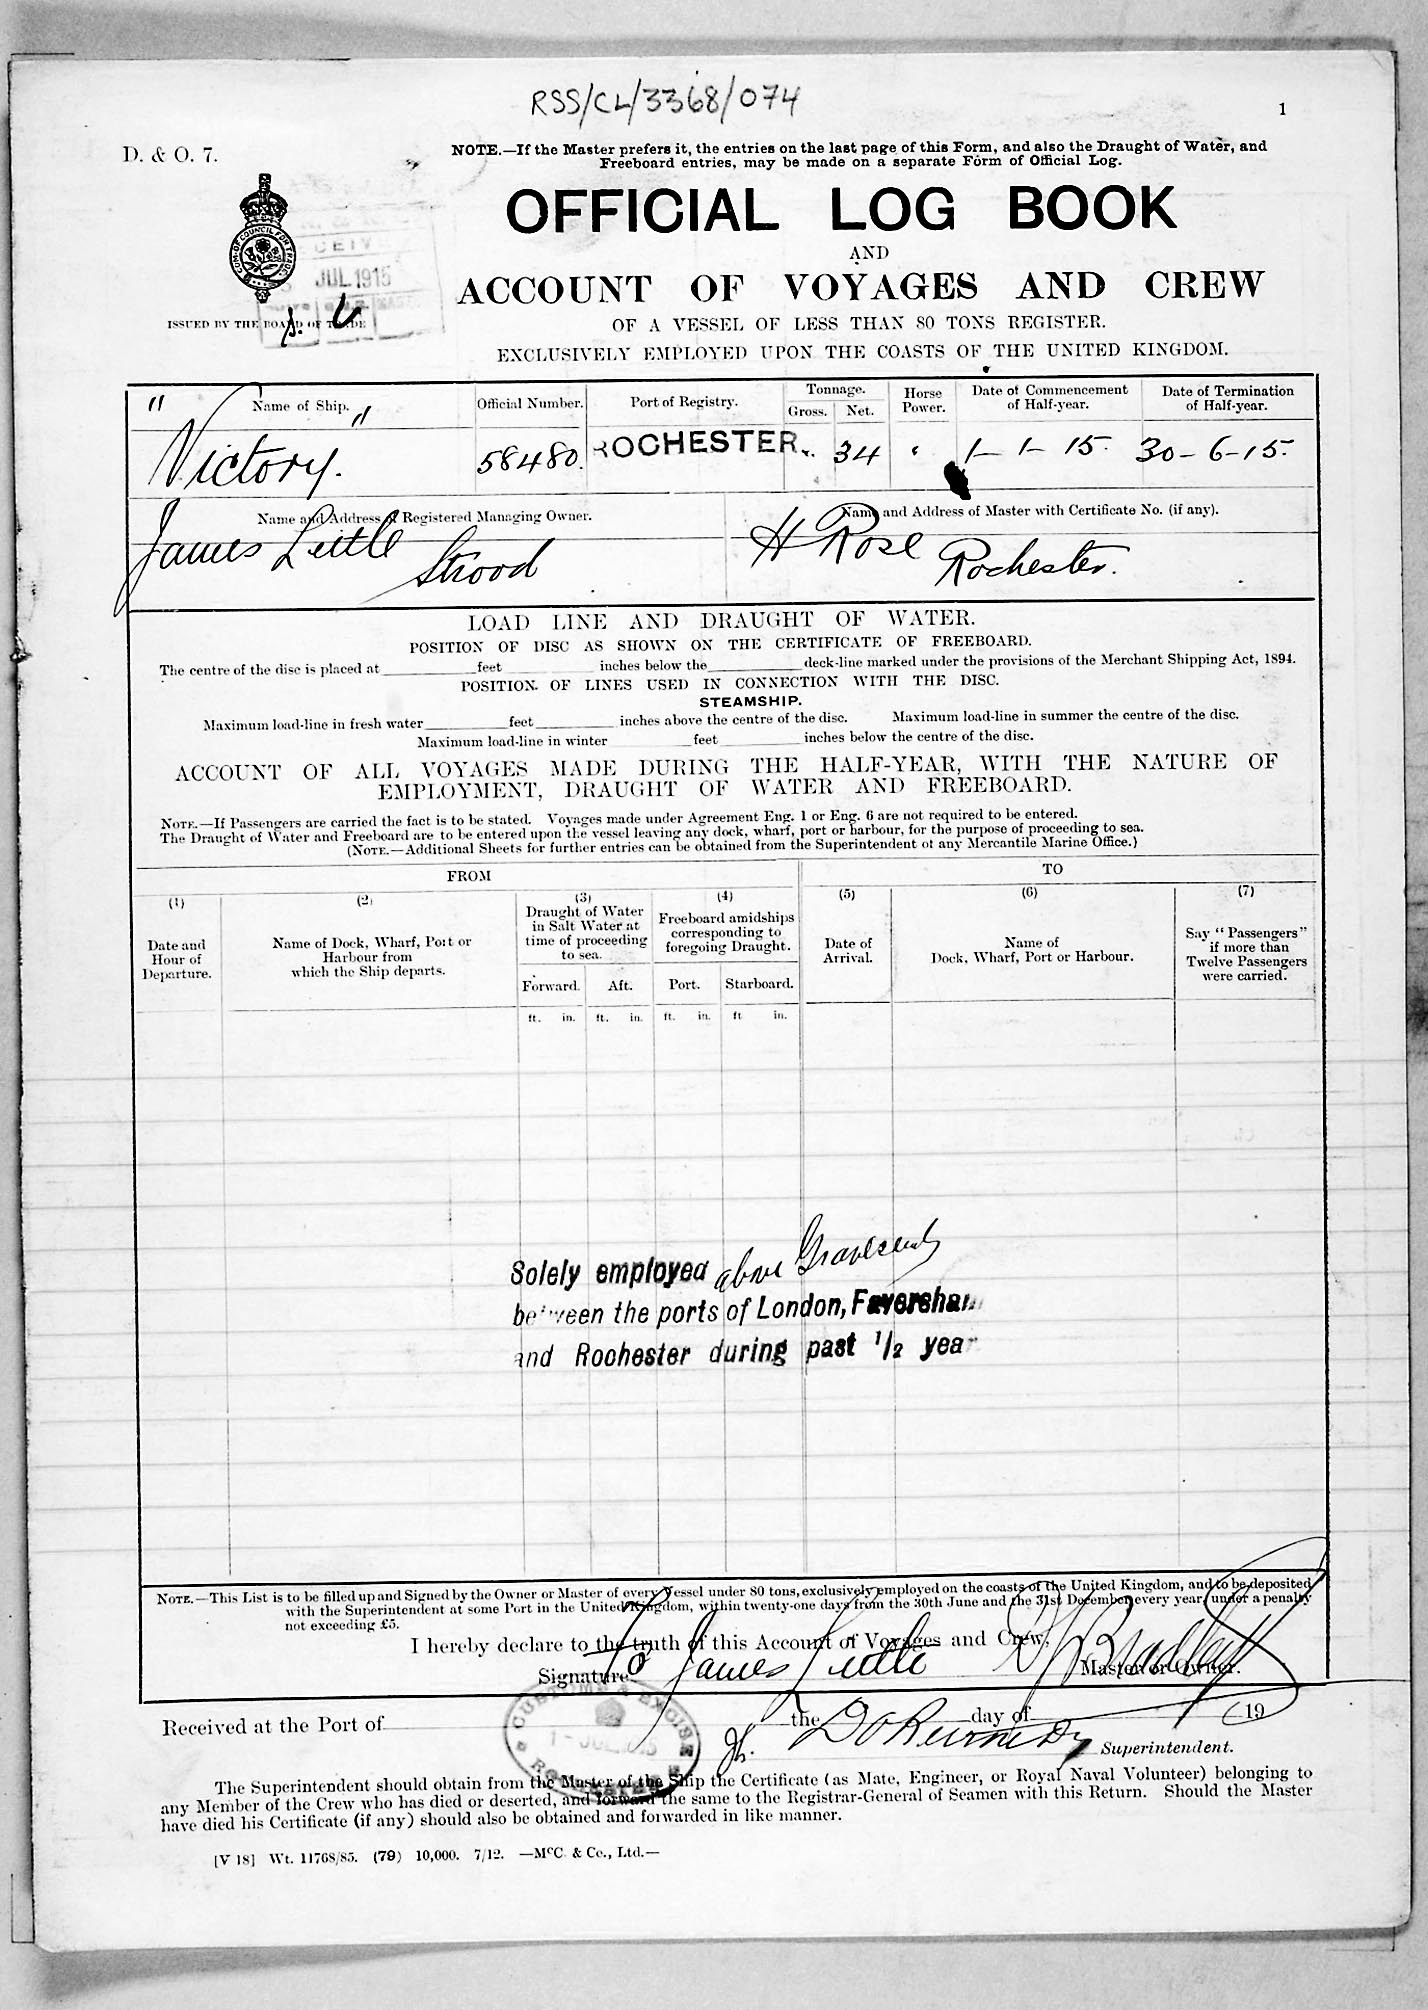 RSS/CL/3368/074
1
D. & O. 7.
NOTE.—If the Master prefers it, the entries on the last page of this Form, and also the Draught of Water, and
Freeboard entries, may be made on a separate Form of Official Log.
OFFICIAL LOG BOOK
AND
ACCOUNT OF VOYAGES AND CREW
OF A VESSEL OF LESS THAN 80 TONS REGISTER.
EXCLUSIVELY EMPLOYED UPON THE COASTS OF THE UNITED KINGDOM.
COM. OF COUNCIL FOR TRADE
JUL 1915
ISSUED BY THE BOARD OF TRADE
Name of Ship.
Official Number.
Port of Registry.
Tonnage.
Gross.
Net.
Horse
Power.
Date of Commencement
of Half-year.
Date of Termination
of Half-year.
"Victory."
58480.
ROCHESTER
34
1-1-15.
30-6-15.
Name and Address of Registered Managing Owner.
Name and Address of Master with Certificate No. (if any).
James Little
Strood
H Rose
Rochester.
LOAD LINE AND DRAUGHT OF WATER.
POSITION OF DISC AS SHOWN ON THE CERTIFICATE OF FREEBOARD.
The centre of the disc is placed at feet inches below the deck-line marked under the provisions of the Merchant Shipping Act, 1894.
POSITION OF LINES USED IN CONNECTION WITH THE DISC.
STEAMSHIP.
Maximum load-line in fresh water feet inches above the centre of the disc. Maximum load-line in summer the centre of the disc.
Maximum load-line in winter feet inches below the centre of the disc.
ACCOUNT OF ALL VOYAGES MADE DURING THE HALF-YEAR, WITH THE NATURE OF
EMPLOYMENT, DRAUGHT OF WATER AND FREEBOARD.
NOTE.—If Passengers are carried the fact is to be stated. Voyages made under Agreement Eng. 1 or Eng. 6 are not required to be entered.
The Draught of Water and Freeboard are to be entered upon the vessel leaving any dock, wharf, port or harbour, for the purpose of proceeding to sea.
(NOTE.—Additional Sheets for further entries can be obtained from the Superintendent of any Mercantile Marine Office.)
FROM
TO
(1)
Date and
Hour of
Departure.
(2)
Name of Dock, Wharf, Port or
Harbour from
which the Ship departs.
(3)
Draught of Water
in Salt Water at
time of proceeding
to sea.
Forward.
Aft.
(4)
Freeboard amidships
corresponding to
foregoing Draught.
Port.
Starboard.
(5)
Date of
Arrival.
(6)
Name of
Dock, Wharf, Port or Harbour.
(7)
Say "Passengers"
if more than
Twelve Passengers
were carried.
ft. in. ft. in. ft. in. ft in.
Solely employed above Gravesend
between the ports of London, Faversham
and Rochester during past 1/2 year
NOTE.—This List is to be filled up and Signed by the Owner or Master of every Vessel under 80 tons, exclusively employed on the coasts of the United Kingdom, and to be deposited
with the Superintendent at some Port in the United Kingdom, within twenty-one days from the 30th June and the 31st December every year, under a penalty
not exceeding £5.
I hereby declare to the truth of this Account of Voyages and Crew,
Signature James Little
Master or Owner.
CUSTOMS & EXCISE
ROCHESTER
Received at the Port of the day of 19
Superintendent.
The Superintendent should obtain from the Master of the Ship the Certificate (as Mate, Engineer, or Royal Naval Volunteer) belonging to
any Member of the Crew who has died or deserted, and forward the same to the Registrar-General of Seamen with this Return. Should the Master
have died his Certificate (if any) should also be obtained and forwarded in like manner.
[V 18] Wt. 11768/85. (79) 10,000. 7/12. —McC. & Co., Ltd.—